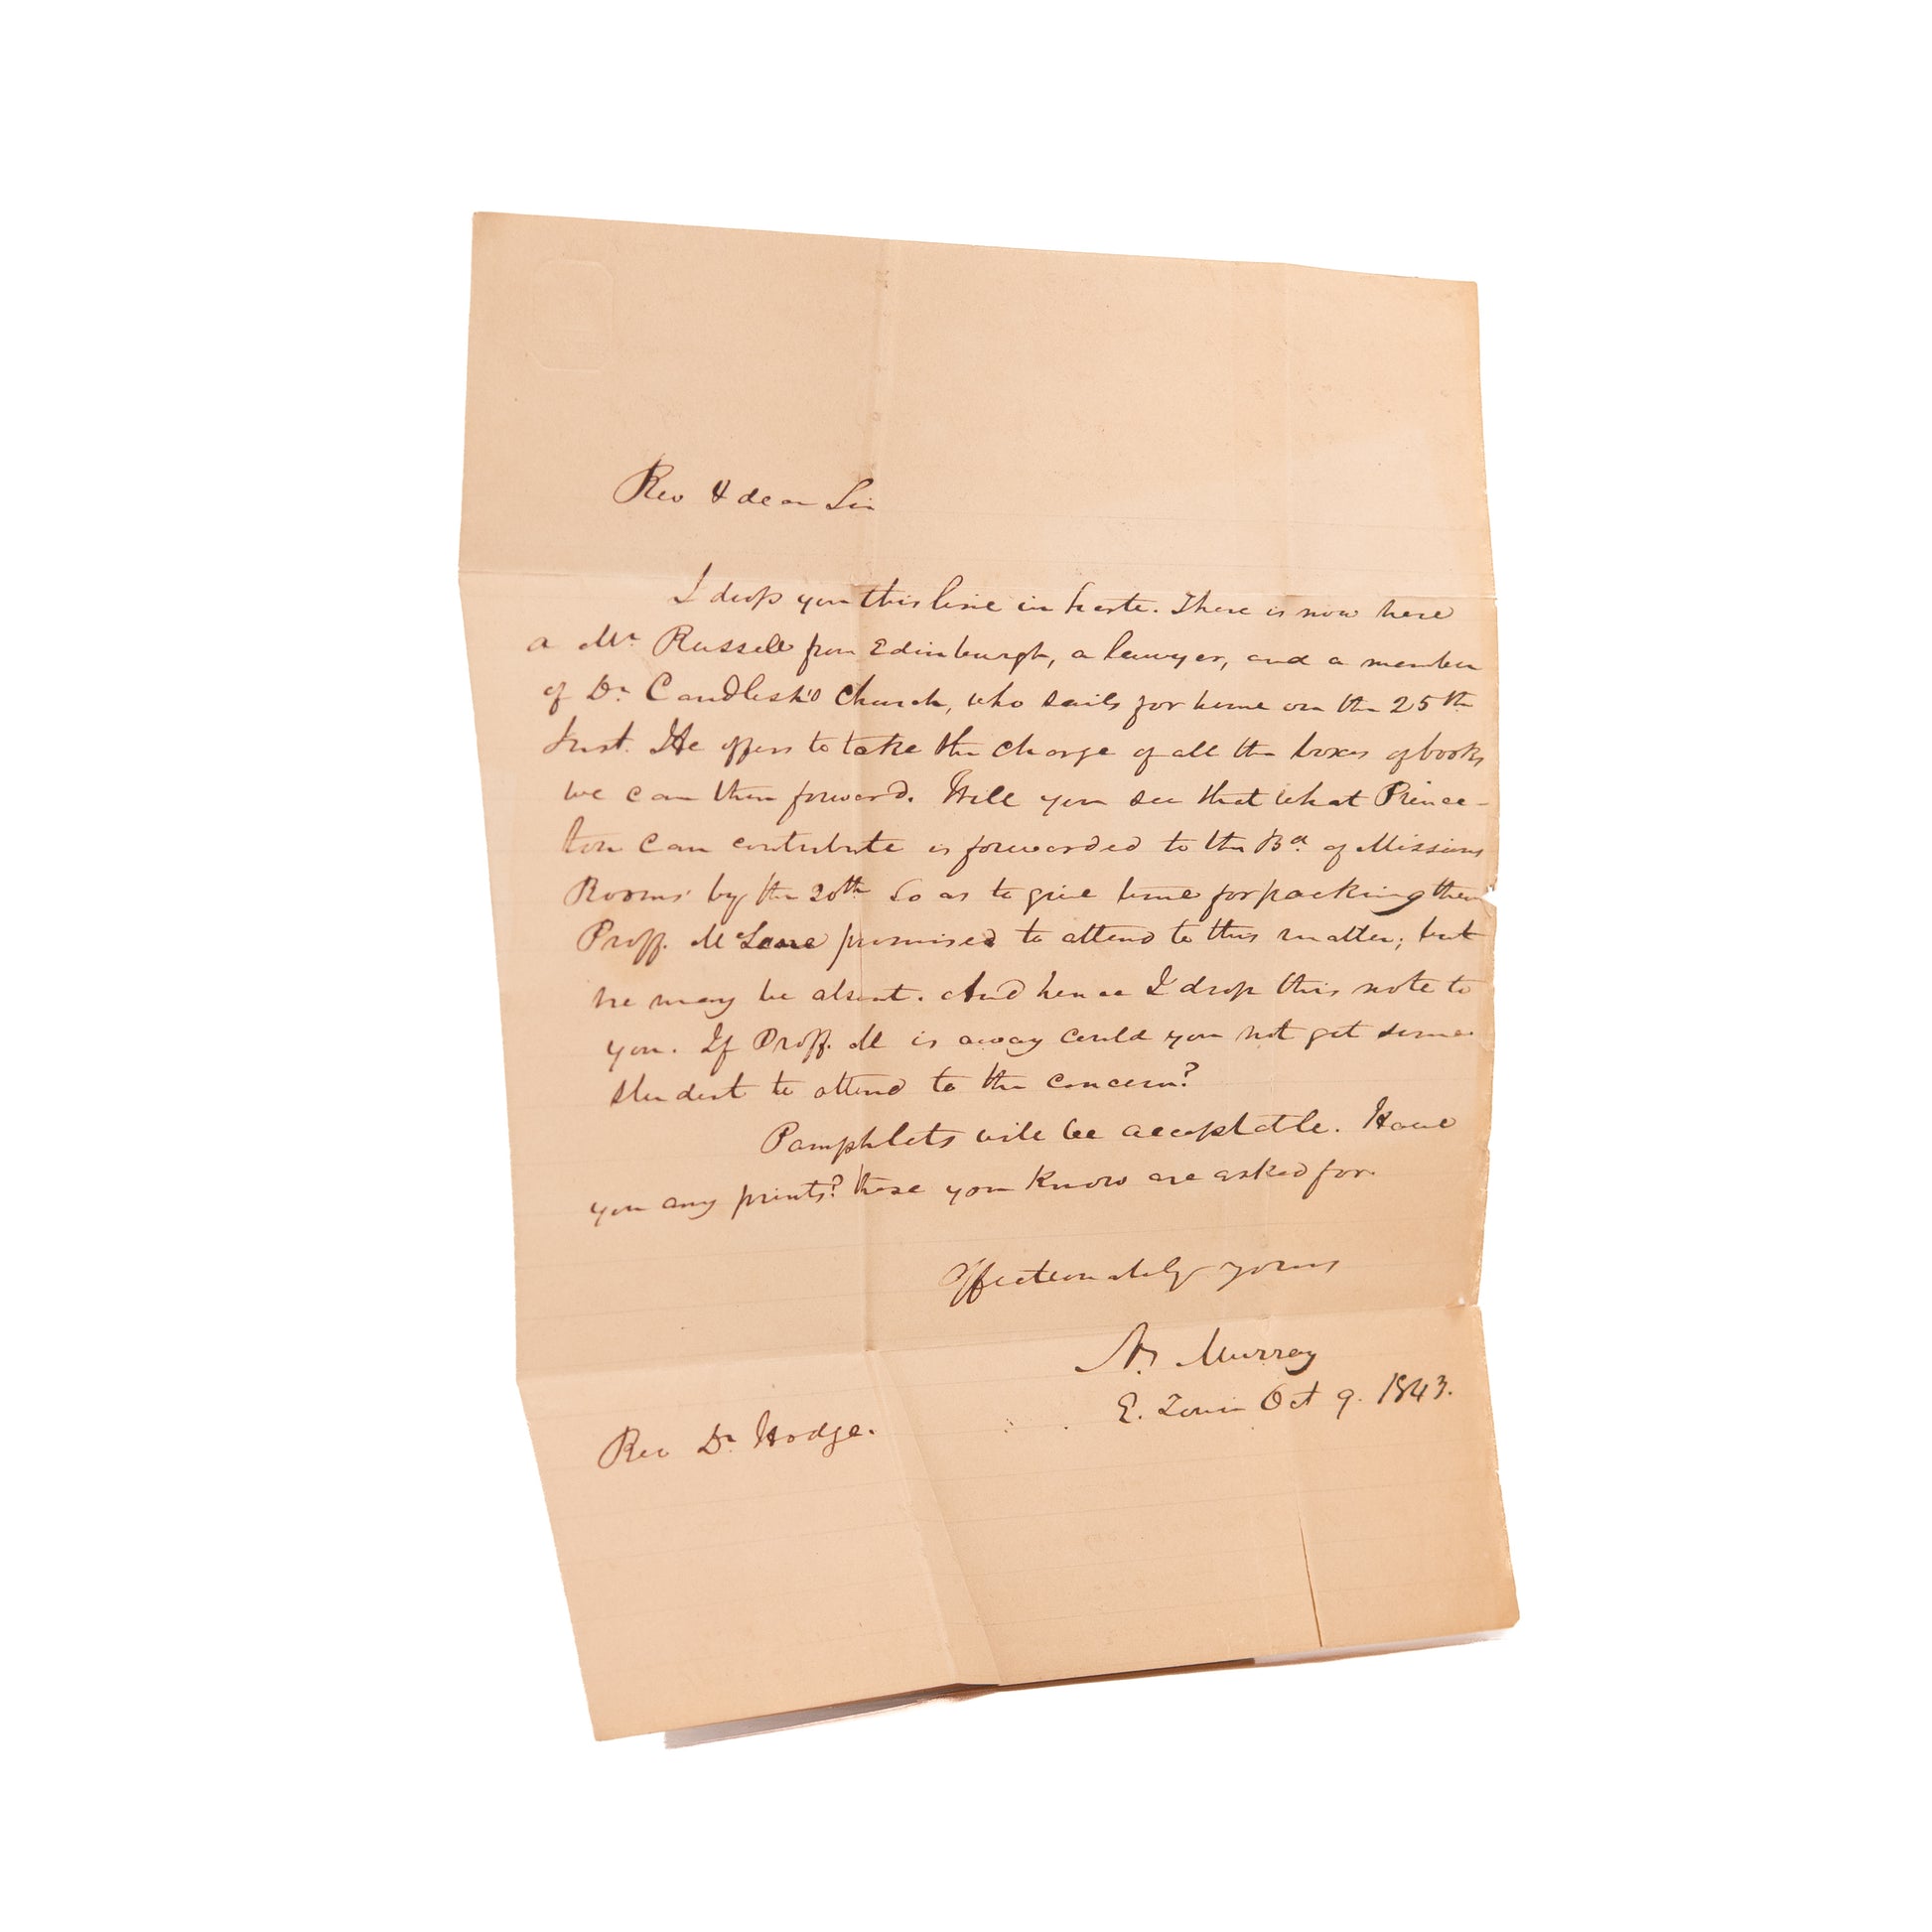 Rev & dear Sir
I drop you this line in haste. There is now here
a Mr Russell from Edinburgh, a lawyer, and a member
of Dr Candlish's Church, who sails for home on the 25th
Inst. He offers to take the charge of all the boxes of books
we can then forward. Will you see that what Prince-
ton can contribute is forwarded to the Bd. of Missions
Rooms by the 20th so as to give time for packing them
Proff. McLane promised to attend to this matter; but
he may be absent. And hence I drop this note to
you. If Proff. M is away could you not get some
student to attend to the concern?
Pamphlets will be acceptable. Have
you any prints? these you know are asked for.
Affectionately yours
N. Murray
E. Town Oct 9. 1843.
Rev Dr Hodge.